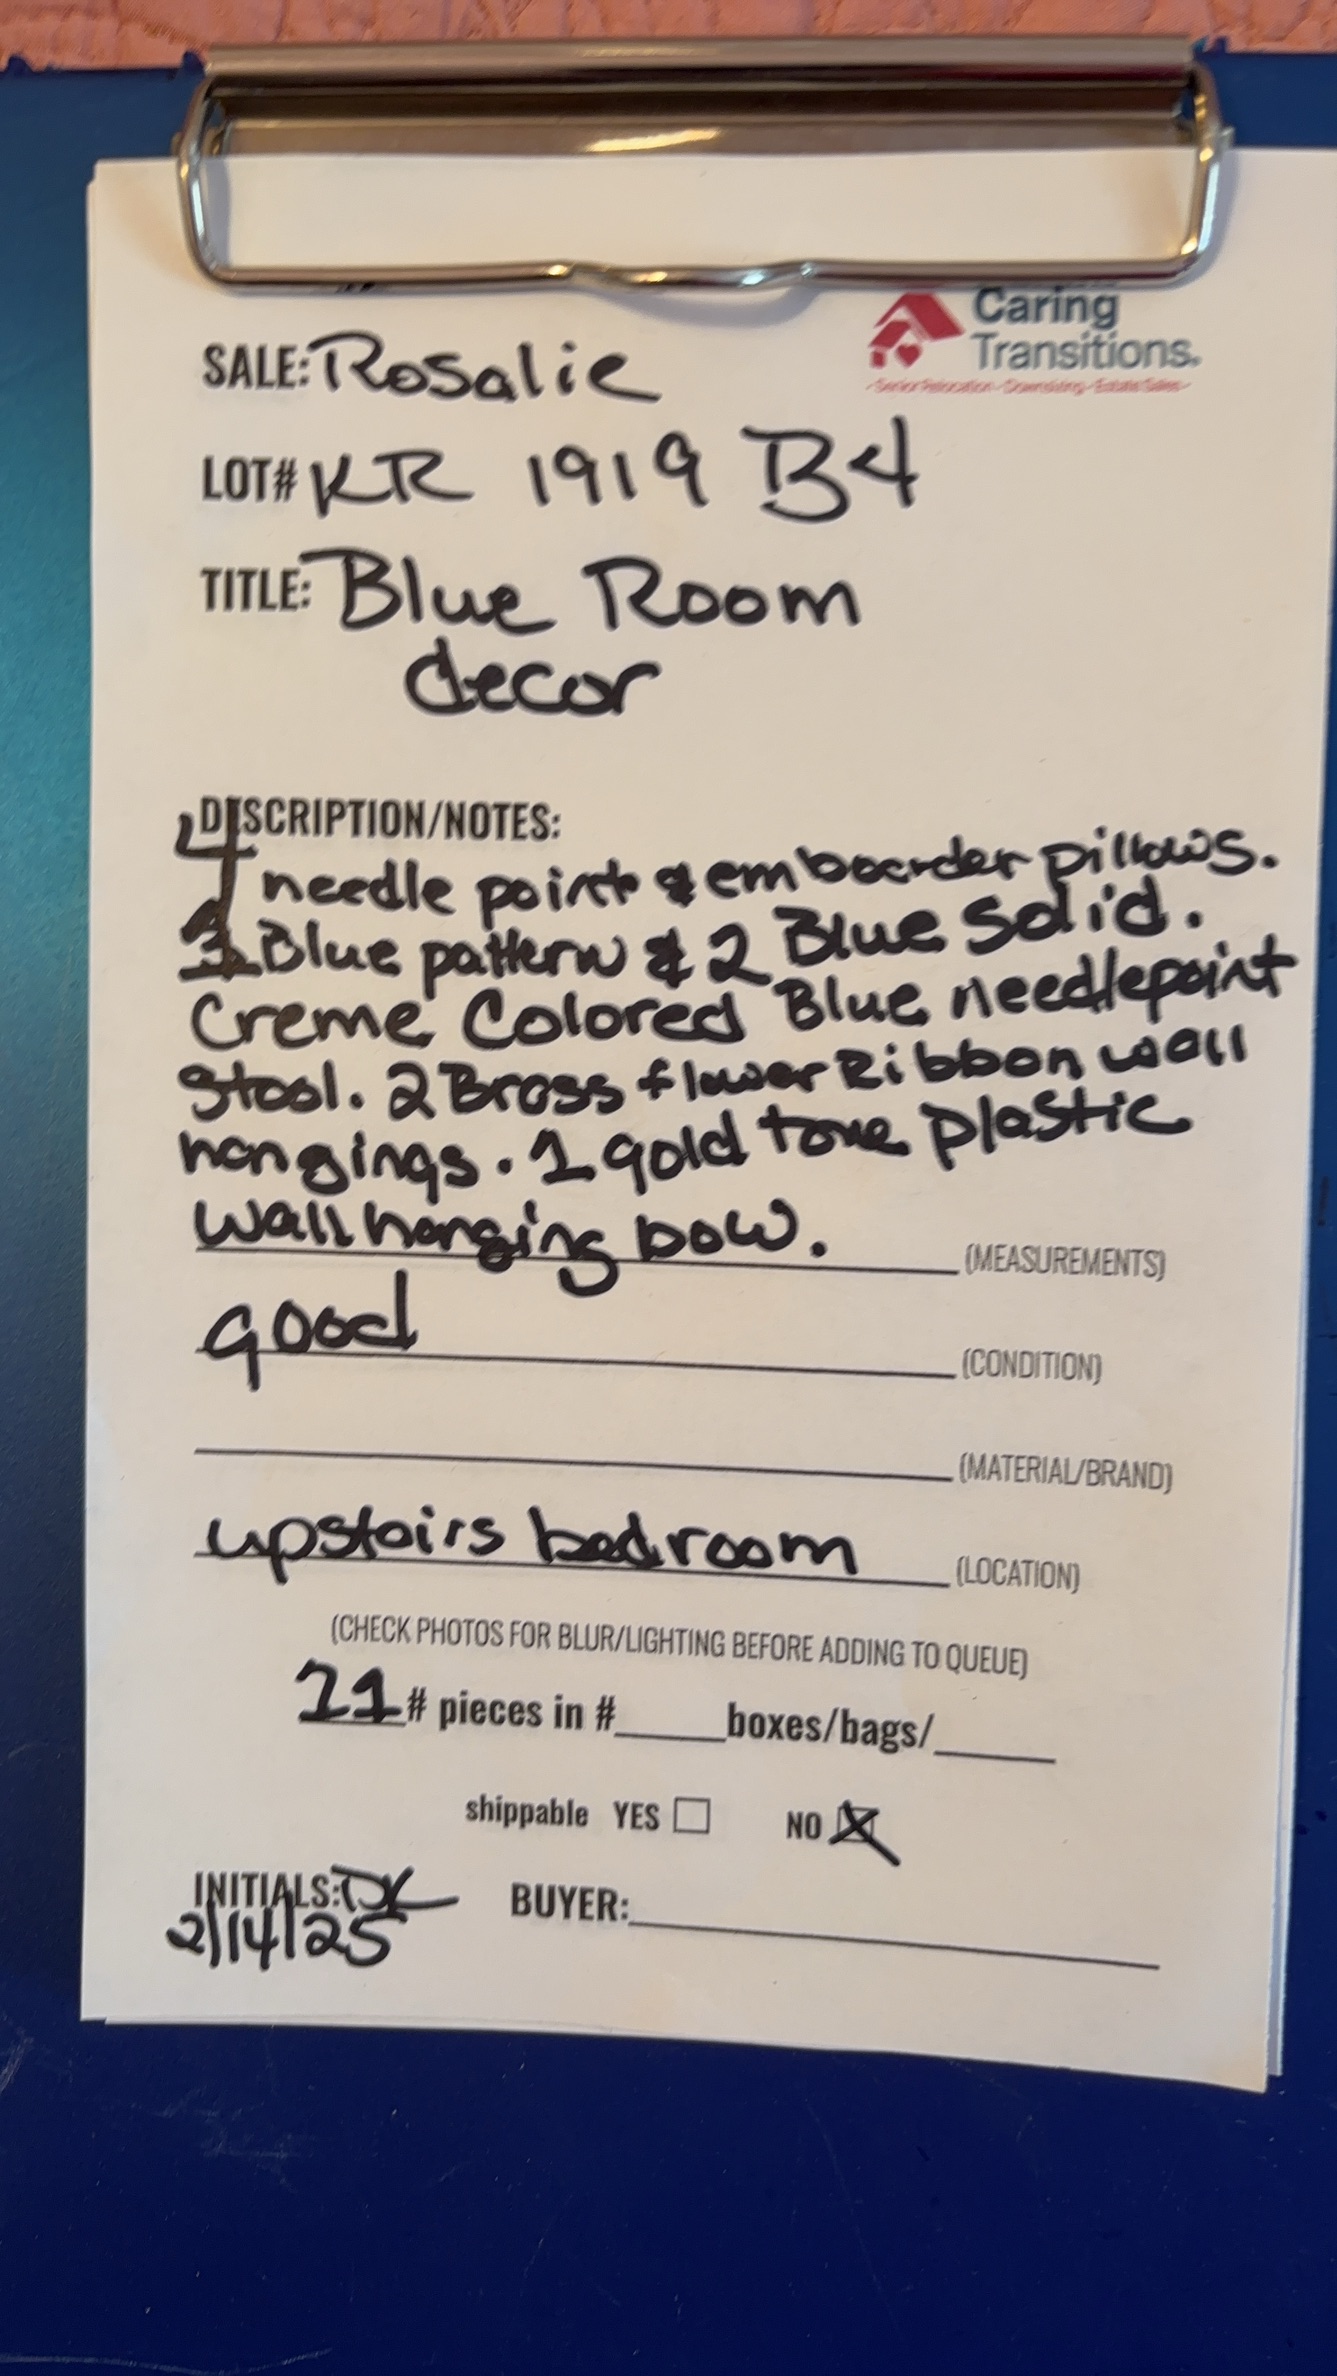 Caring
Transitions.
-Senior Relocation - Downsizing - Estate Sales-
SALE: Rosalie
LOT# KR 1919 B4
TITLE: Blue Room
decor
DESCRIPTION/NOTES:
4 needle point & emboarder pillows.
Blue pattern & 2 Blue Solid.
Creme Colored Blue needlepoint
Stool. 2 Brass flower Ribbon wall
hangings. 1 gold tone plastic
wall hanging bow. (MEASUREMENTS)
good (CONDITION)
(MATERIAL/BRAND)
upstairs bedroom (LOCATION)
(CHECK PHOTOS FOR BLUR/LIGHTING BEFORE ADDING TO QUEUE)
11# pieces in #_____boxes/bags/_____
shippable YES ☐ NO ☒
INITIALS: DK BUYER:
2/14/25